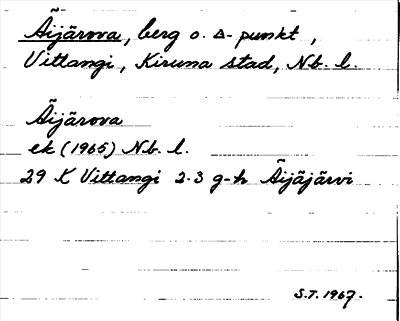 Äijärova, berg o. Δ-punkt,
Vittangi, Kiruna stad, Nb. l.
Äijärova
ek (1965) Nb. l.
29 K Vittangi 2-3 g-h Äijäjärvi
S.T. 1967.